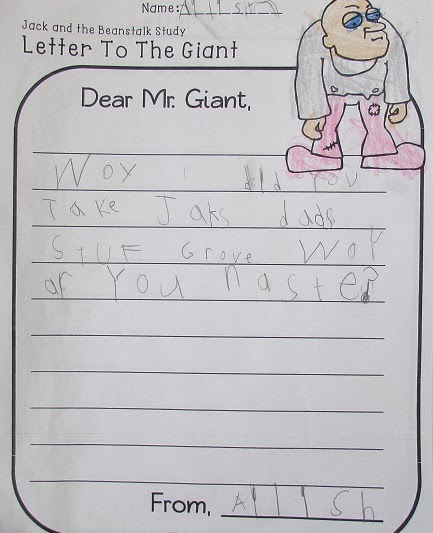 Name: Allisn
Jack and the Beanstalk Study
Letter To The Giant
Dear Mr. Giant,
Woy did you
Take Jaks dads
Stuf Grove Woy
ar You naste?
From, Allish